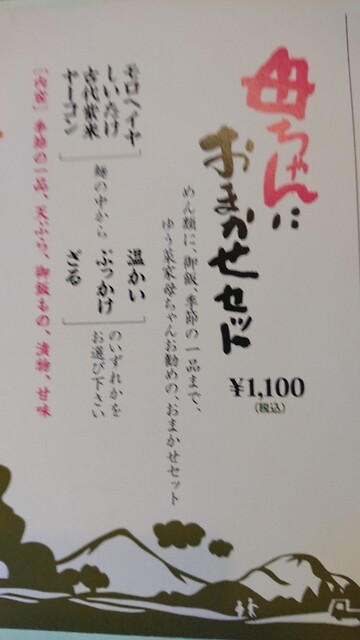 母ちゃんに
おまかせセット
¥1,100
(税込)
めん類に、御飯、季節の一品まで、
ゆう菜家母ちゃんお勧めの、おまかせセット
モロヘイヤ
しいたけ
古代紫米
ヤーコン
麺の中から
温かい
ぶっかけ
ざる
のいずれかを
お選び下さい
[内容] 季節の一品、天ぷら、御飯もの、漬物、甘味